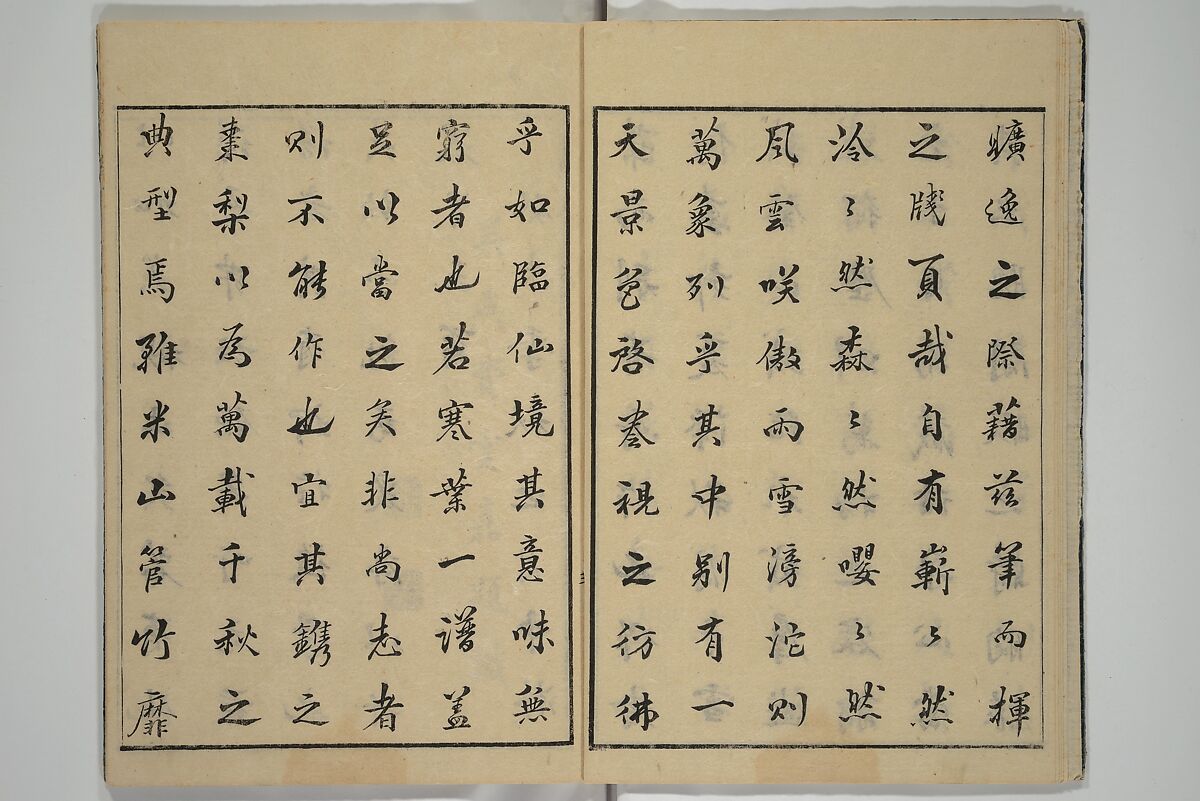 曠逸之際藉茲筆而揮
之牋頁哉自有嶄〻然
泠〻然森〻然嚶〻然
風雲咲傲雨雪滂沱則
萬象列乎其中別有一
天景色啓巻視之彷彿
乎如臨仙境其意味無
窮者也若寒葉一譜盖
足以當之矣非尚志者
則不能作也宜其鐫之
棗梨以為萬載千秋之
典型焉雖米山管竹靡